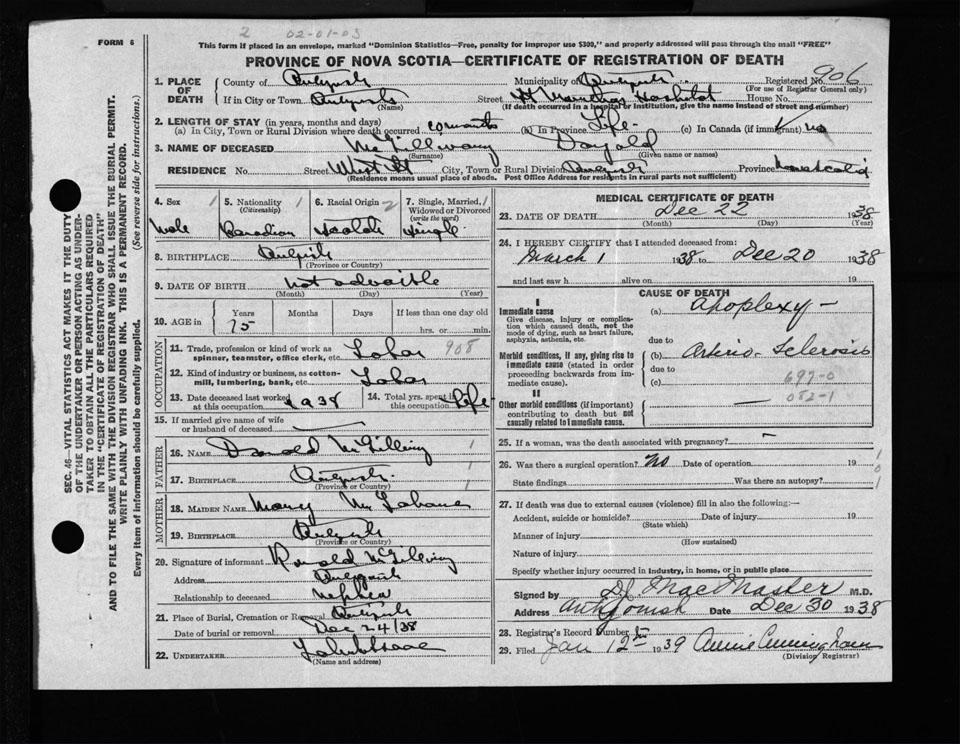 2 02-01-03
FORM 6
This form if placed in an envelope, marked "Dominion Statistics—Free, penalty for improper use $300," and properly addressed will pass through the mail "FREE"
PROVINCE OF NOVA SCOTIA—CERTIFICATE OF REGISTRATION OF DEATH
SEC. 46—VITAL STATISTICS ACT MAKES IT THE DUTY
OF THE UNDERTAKER OR PERSON ACTING AS UNDER-
TAKER TO OBTAIN ALL THE PARTICULARS REQUIRED
IN THE "CERTIFICATE OF REGISTRATION OF DEATH"
AND TO FILE THE SAME WITH THE DIVISION REGISTRAR WHO SHALL ISSUE THE BURIAL PERMIT.
WRITE PLAINLY WITH UNFADING INK. THIS IS A PERMANENT RECORD.
Every item of information should be carefully supplied. (See reverse side for instructions.)
1. PLACE OF DEATH
County of Antigonish Municipality of Antigonish Registered No. 906
(For use of Registrar General only)
If in City or Town Antigonish Street St Marthas Hospital House No.
(Name) (If death occurred in a hospital or institution, give the name instead of street and number)
2. LENGTH OF STAY (in years, months and days)
(a) In City, Town or Rural Division where death occurred months (b) In Province Life (c) In Canada (if immigrant) no
3. NAME OF DECEASED McGillivary
(Surname) (Given name or names)
RESIDENCE No. Street West St City, Town or Rural Division Antigonish Province Nova Scotia
(Residence means usual place of abode. Post Office Address for residents in rural parts not sufficient)
4. Sex 1 5. Nationality 1 6. Racial Origin 2 7. Single, Married, 1
(Citizenship) Widowed or Divorced
(write the word)
Male Canadian Scotch Single
8. BIRTHPLACE Antigonish
(Province or Country)
9. DATE OF BIRTH not
(Month) (Day) (Year)
10. AGE in Years Months Days If less than one day old
75 hrs. or min.
OCCUPATION
11. Trade, profession or kind of work as
spinner, teamster, office clerk, etc. Labor 908
12. Kind of industry or business, as cotton-
mill, lumbering, bank, etc. Labor
13. Date deceased last worked
at this occupation 1938
14. Total yrs. spent in
this occupation Life
15. If married give name of wife
or husband of deceased —
FATHER
16. NAME Donald McGillivray 1
17. BIRTHPLACE Antigonish 1
(Province or Country)
MOTHER
18. MAIDEN NAME Mary 1
19. BIRTHPLACE Antigonish
(Province or Country)
20. Signature of informant Ronald McGillivray
Address Antigonish
Relationship to deceased nephew
21. Place of Burial, Cremation or Removal Antigonish
Date of burial or removal Dec 24/38
22. UNDERTAKER
(Name and address)
MEDICAL CERTIFICATE OF DEATH
23. DATE OF DEATH Dec 22 1938
(Month) (Day) (Year)
24. I HEREBY CERTIFY that I attended deceased from:
March 1 1938 to Dec 20 1938
and last saw h alive on 19
CAUSE OF DEATH
I
Immediate cause (a) Apoplexy —
Give disease, injury or complica-
tion which caused death, not the
mode of dying, such as heart failure,
asphyxia, asthenia, etc.
due to
Morbid conditions, if any, giving rise to
immediate cause (stated in order
proceeding backwards from im-
mediate cause).
(b) Arterio-Sclerosis
due to
(c) 697-0
082-1
II
Other morbid conditions (if important)
contributing to death but not
causally related to immediate cause.
—
25. If a woman, was the death associated with pregnancy? —
26. Was there a surgical operation? No Date of operation 19 1
0
State findings Was there an autopsy? 1
27. If death was due to external causes (violence) fill in also the following:—
Accident, suicide or homicide? Date of injury 19
(State which)
Manner of injury
(How sustained)
Nature of injury
Specify whether injury occurred in industry, in home, or in public place
Signed by MacMaster M.D.
Address Antigonish Date Dec 30 1938
28. Registrar's Record Number
29. Filed Jan 12th 1939 Annie Cunningham
(Division Registrar)